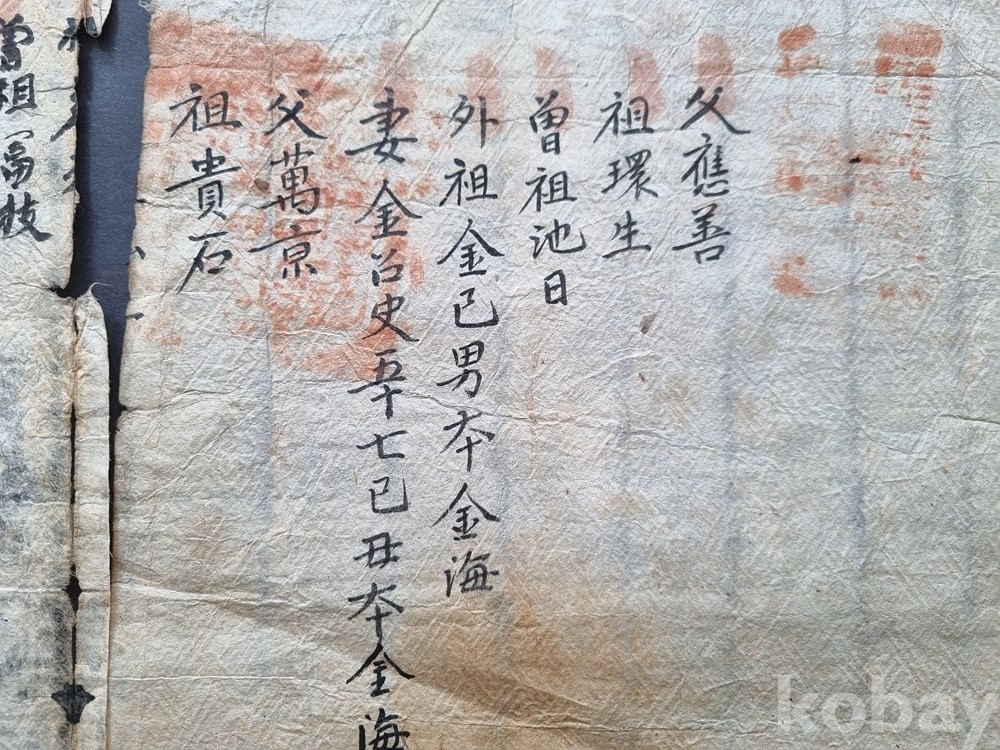 父應善
祖環生
曾祖池日
外祖金已男本金海
妻金召史五十七己丑本金海
父萬京
祖貴石
曾祖
kobay